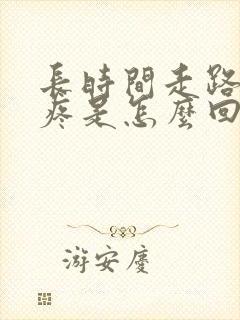 長時間走路
疼是怎麼回
游安慶